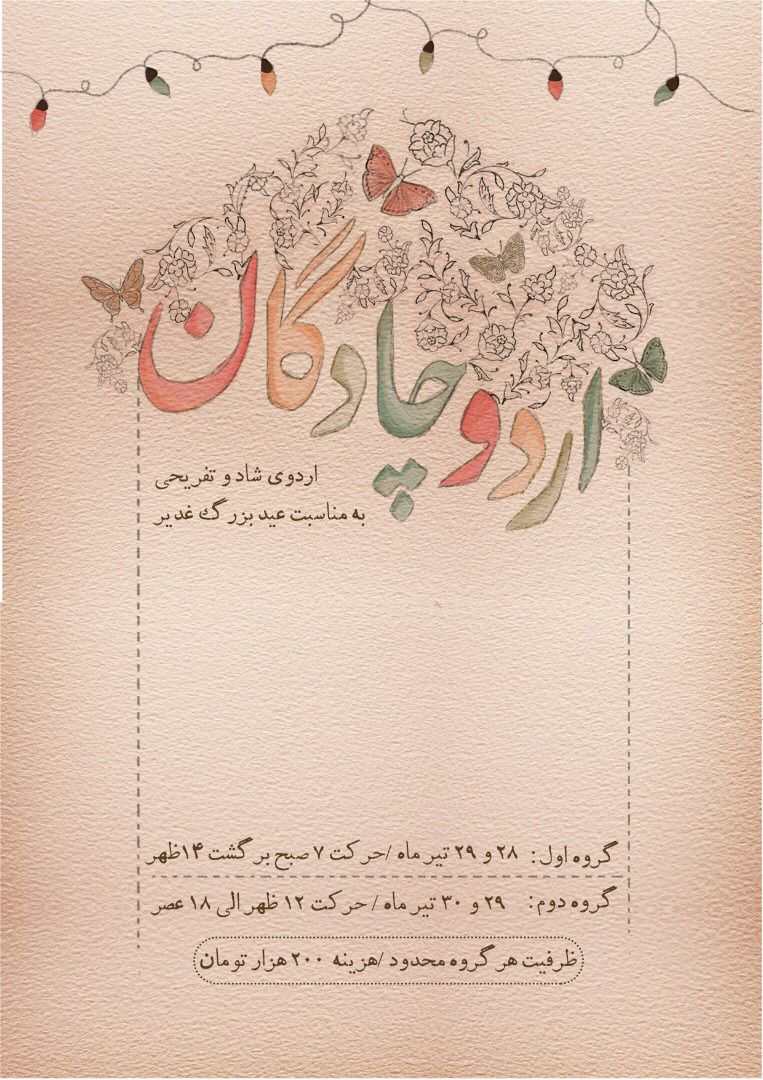 اردو چادگان
اردوی شاد و تفریحی
به مناسبت عید بزرگ غدیر
گروه اول: ۲۸ و ۲۹ تیر ماه /حرکت ۷ صبح برگشت ۱۴ظهر
گروه دوم: ۲۹ و ۳۰ تیر ماه / حرکت ۱۲ ظهر الی ۱۸ عصر
ظرفیت هر گروه محدود /هزینه ۲۰۰ هزار تومان